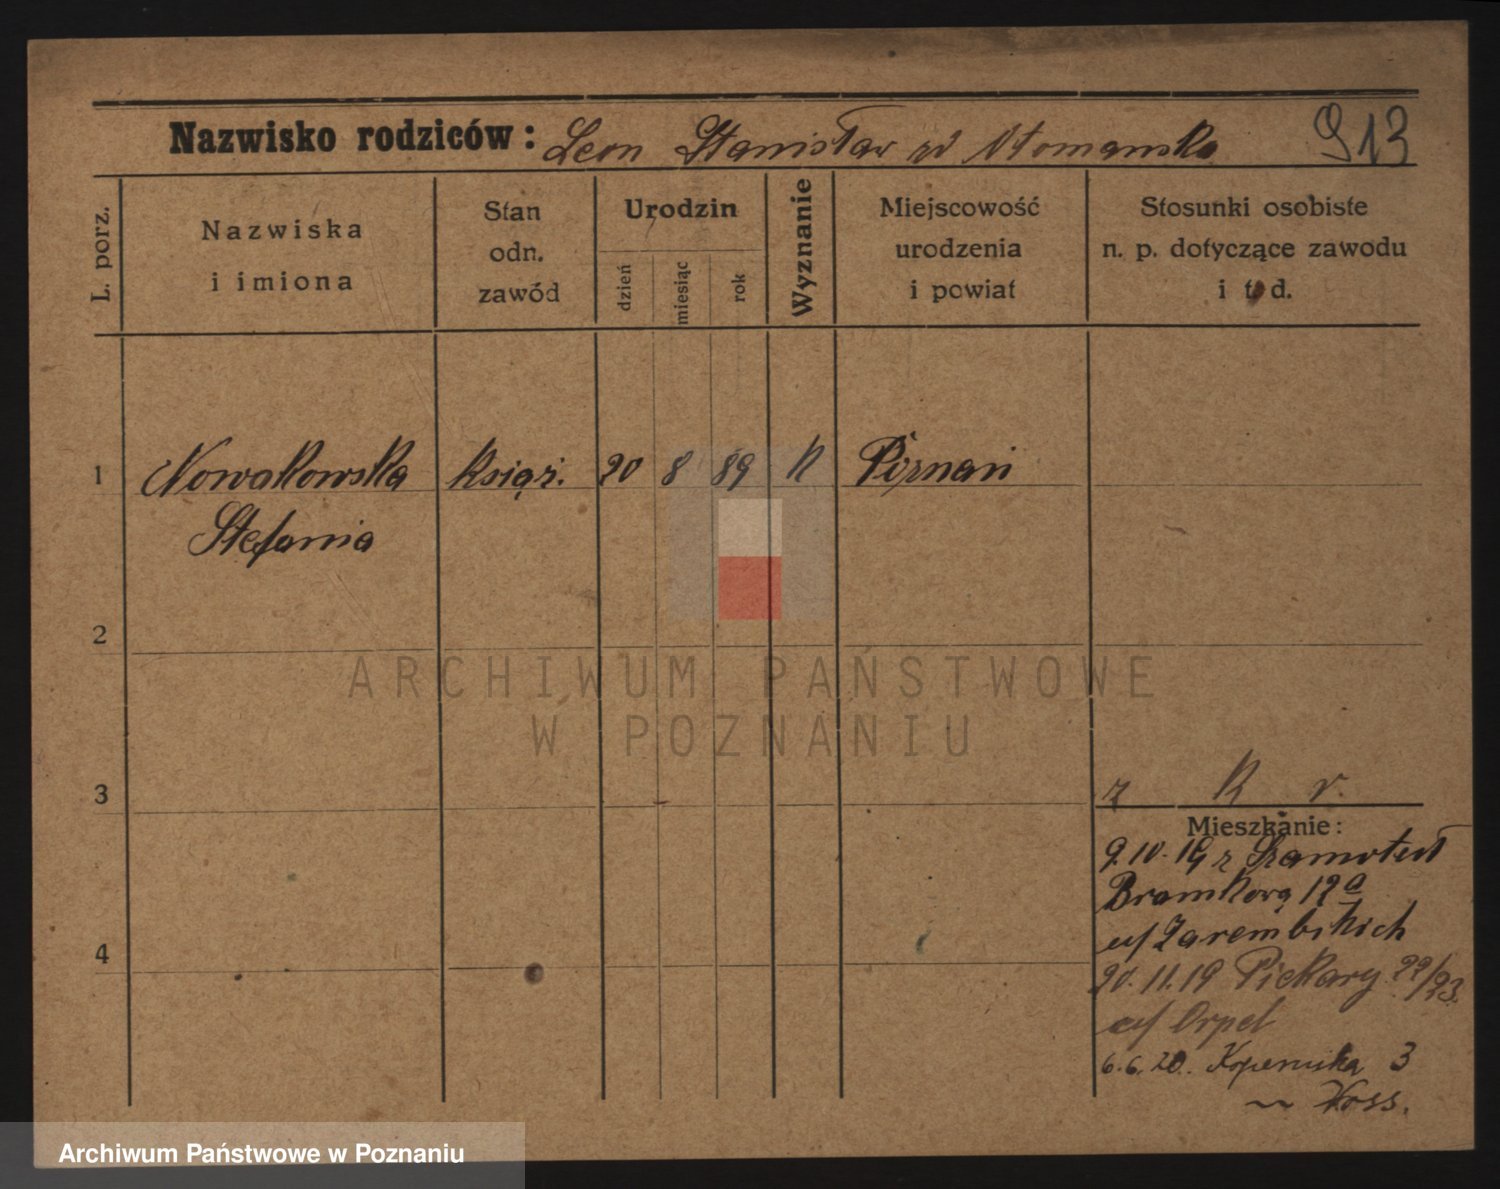 Nazwisko rodziców: Leon Stanisław 913
L. porz.
Nazwiska
i imiona
Stan
odn.
zawód
Urodzin
dzień
miesiąc
rok
Wyznanie
Miejscowość
urodzenia
i powiat
Stosunki osobiste
n. p. dotyczące zawodu
i t. d.
1 Nowakowska książ. 20 8 89 K Poznań
Stefania
2
3
4
z K r.
Mieszkanie:
9.10.19 z Szamotuł
Bramkowa 12a
u/ Zarembskich
20.11.19 Piekary 22/23.
u/ Orpel
6.6.20. Kopernika 3
~ Woss.
ARCHIWUM PAŃSTWOWE
W POZNANIU
Archiwum Państwowe w Poznaniu